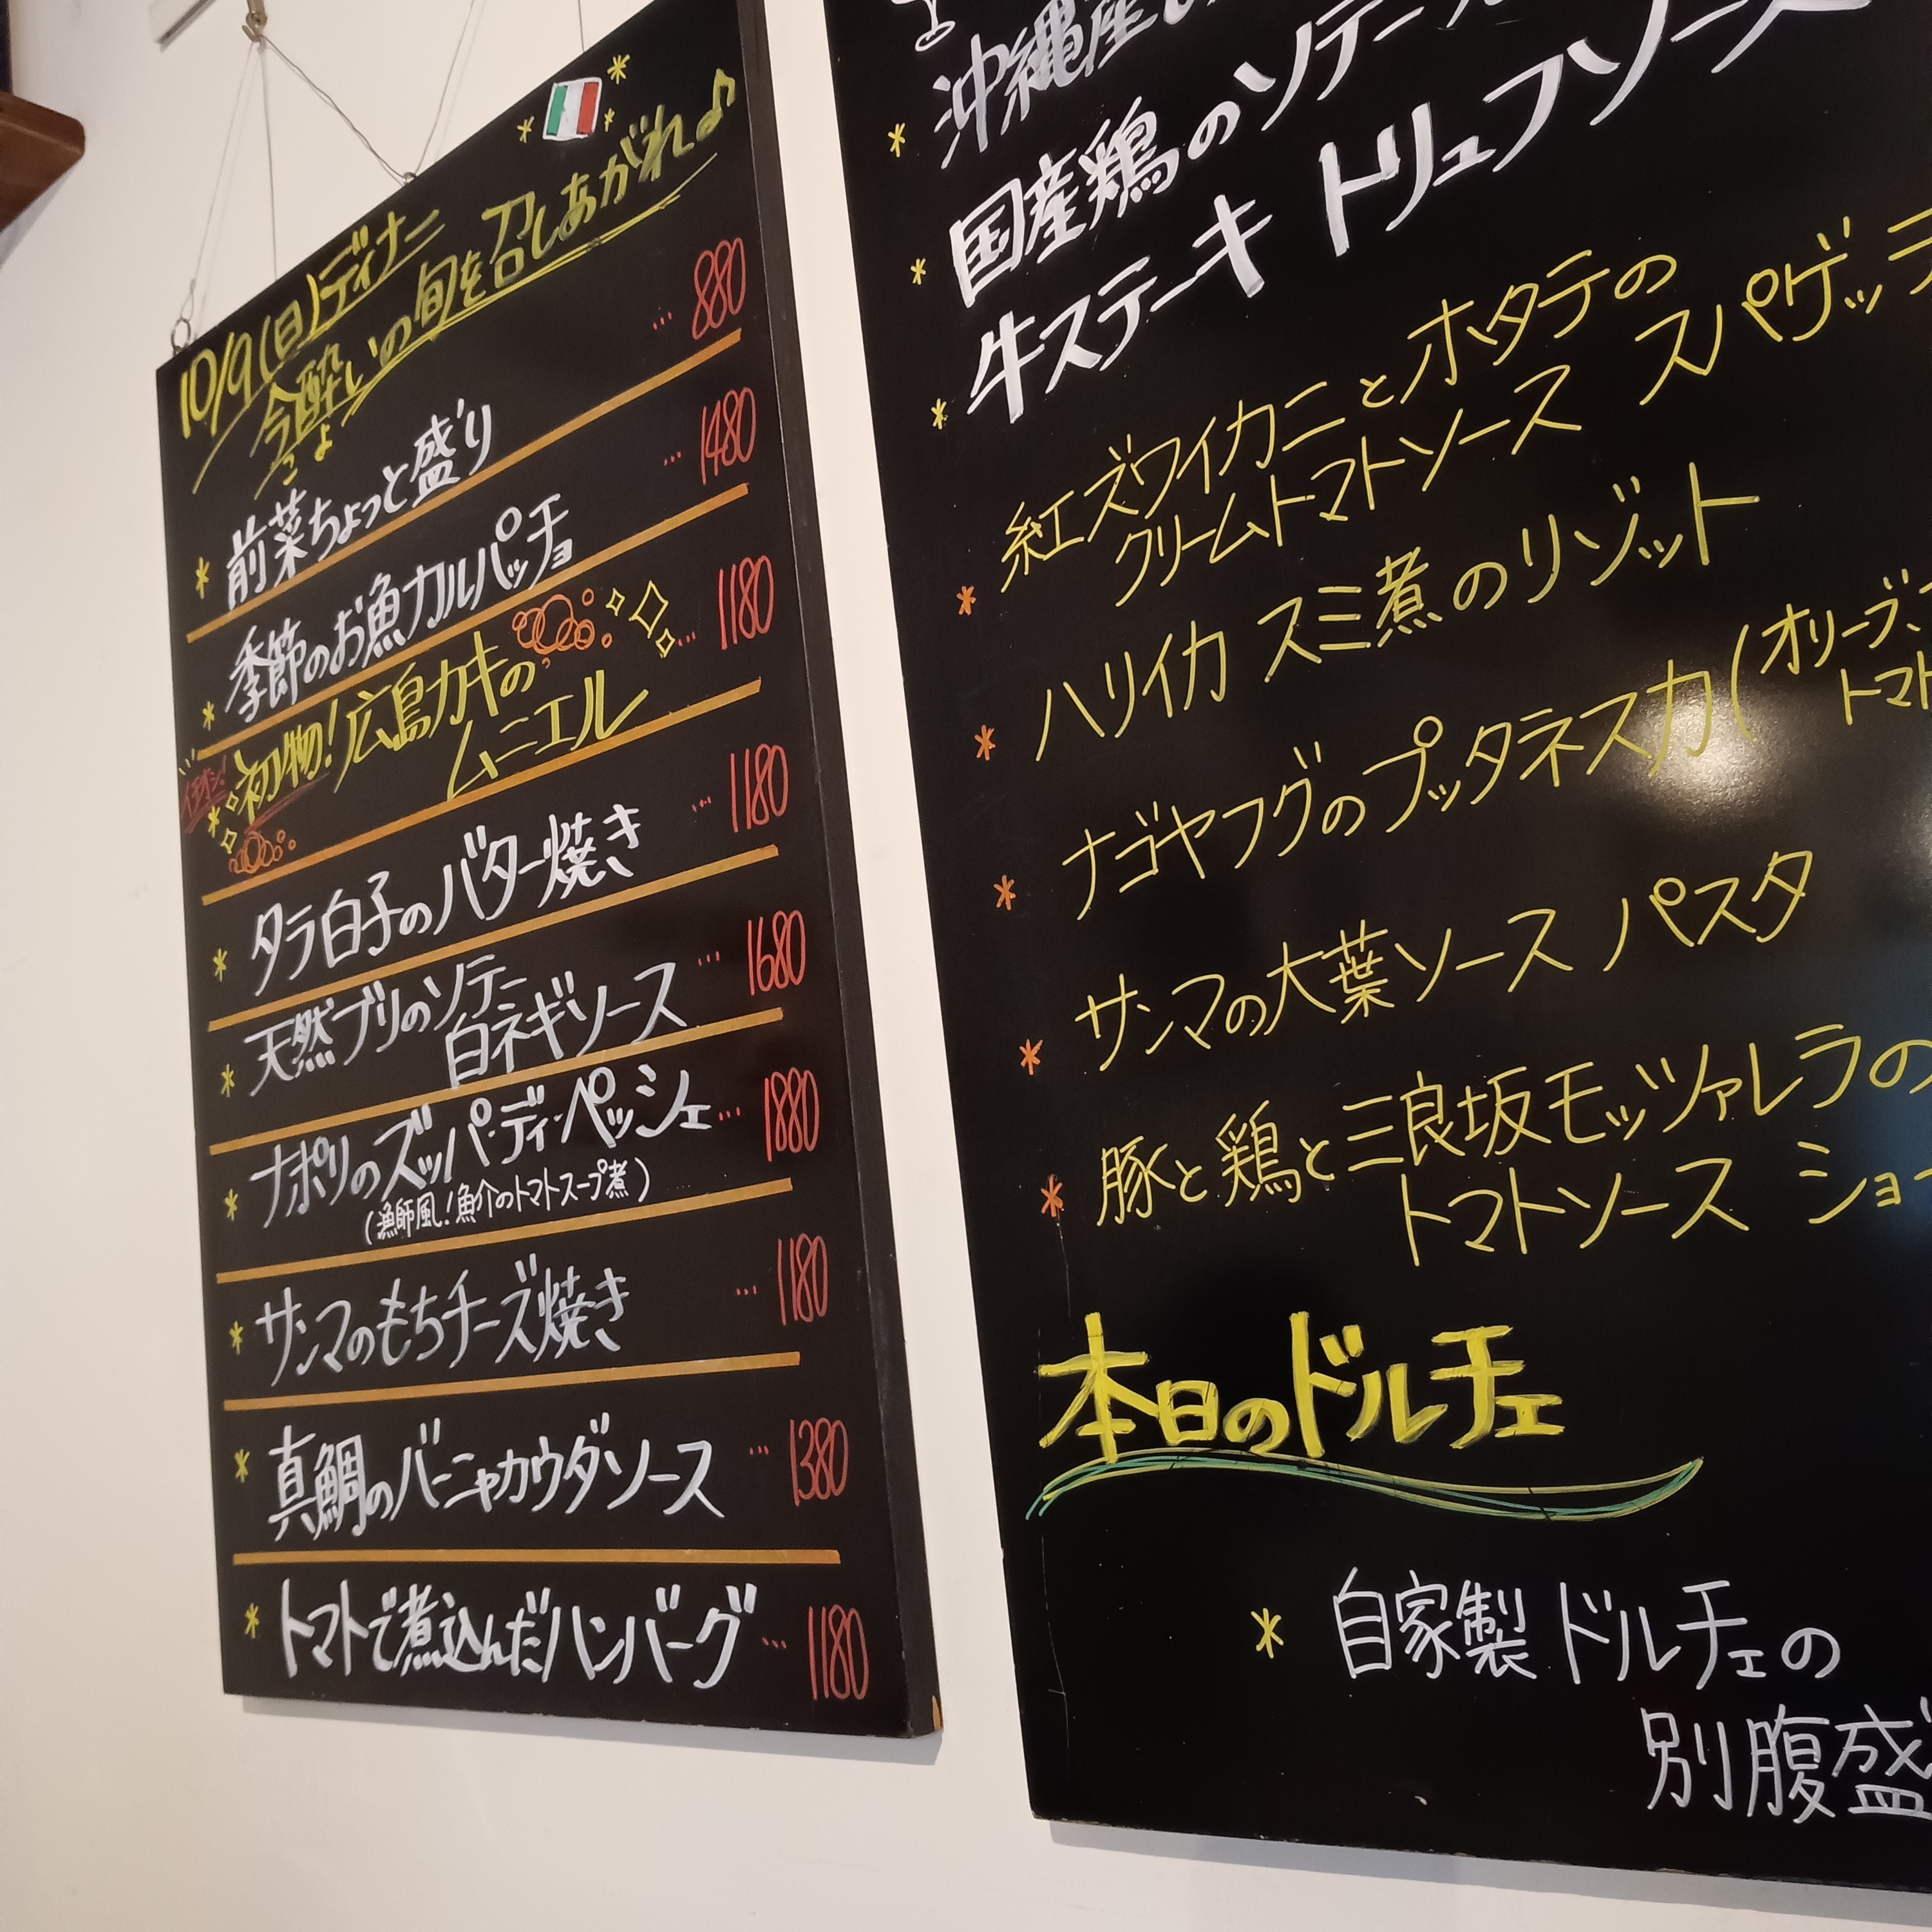 10/9(日)ディナー
今酔いの旬を召しあがれ♪
こよ
前菜ちょっと盛り … 880
季節のお魚カルパッチョ … 1480
イチオシ!
初物!広島カキの
ムニエル … 1180
タラ白子のバター焼き … 1180
天然ブリのソテー
白ネギソース … 1680
ナポリのズッパ・ディ・ペッシェ … 1880
(漁師風!魚介のトマトスープ煮)
サンマのもちチーズ焼き … 1180
真鯛のバーニャカウダソース … 1380
トマトで煮込んだハンバーグ … 1180
沖縄産
国産鶏のソテー
牛ステーキ トリュフソース
紅ズワイカニとホタテの
クリームトマトソース スパゲッテ
ハリイカ スミ煮のリゾット
ナゴヤフグのプッタネスカ(オリーブ、
トマト
サンマの大葉ソース パスタ
豚と鶏と三良坂モッツァレラの
トマトソース ショー
本日のドルチェ
自家製ドルチェの
別腹盛